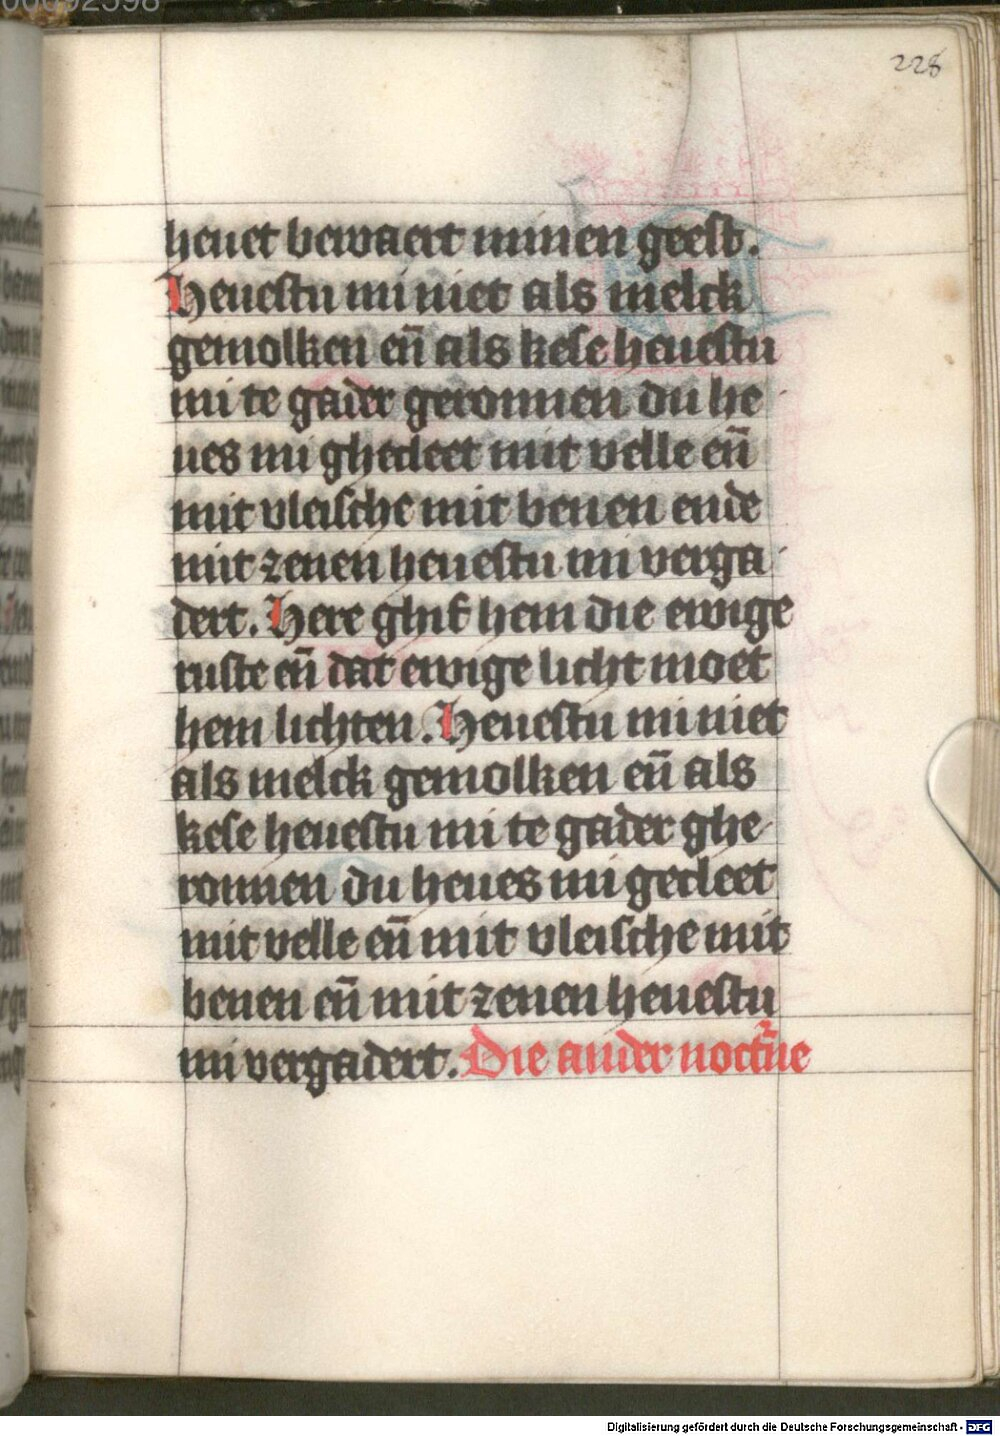 228
heuet bewaert minen geest.
Heuestu mi niet als melck
gemolken eñ als kese heuestu
mi te gader geronnen du he
ues mi ghecleet mit velle eñ
mit vleische mit benen ende
mit zenen heuestu mi verga
dert. Here ghif hem die ewige
ruste eñ dat ewige licht moet
hem lichten. Heuestu mi niet
als melck gemolken eñ als
kese heuestu mi te gader ghe
ronnen du heues mi gecleet
mit velle eñ mit vleische mit
benen eñ mit zenen heuestu
mi vergadert. Die ander noctne
Digitalisierung gefördert durch die Deutsche Forschungsgemeinschaft - DFG